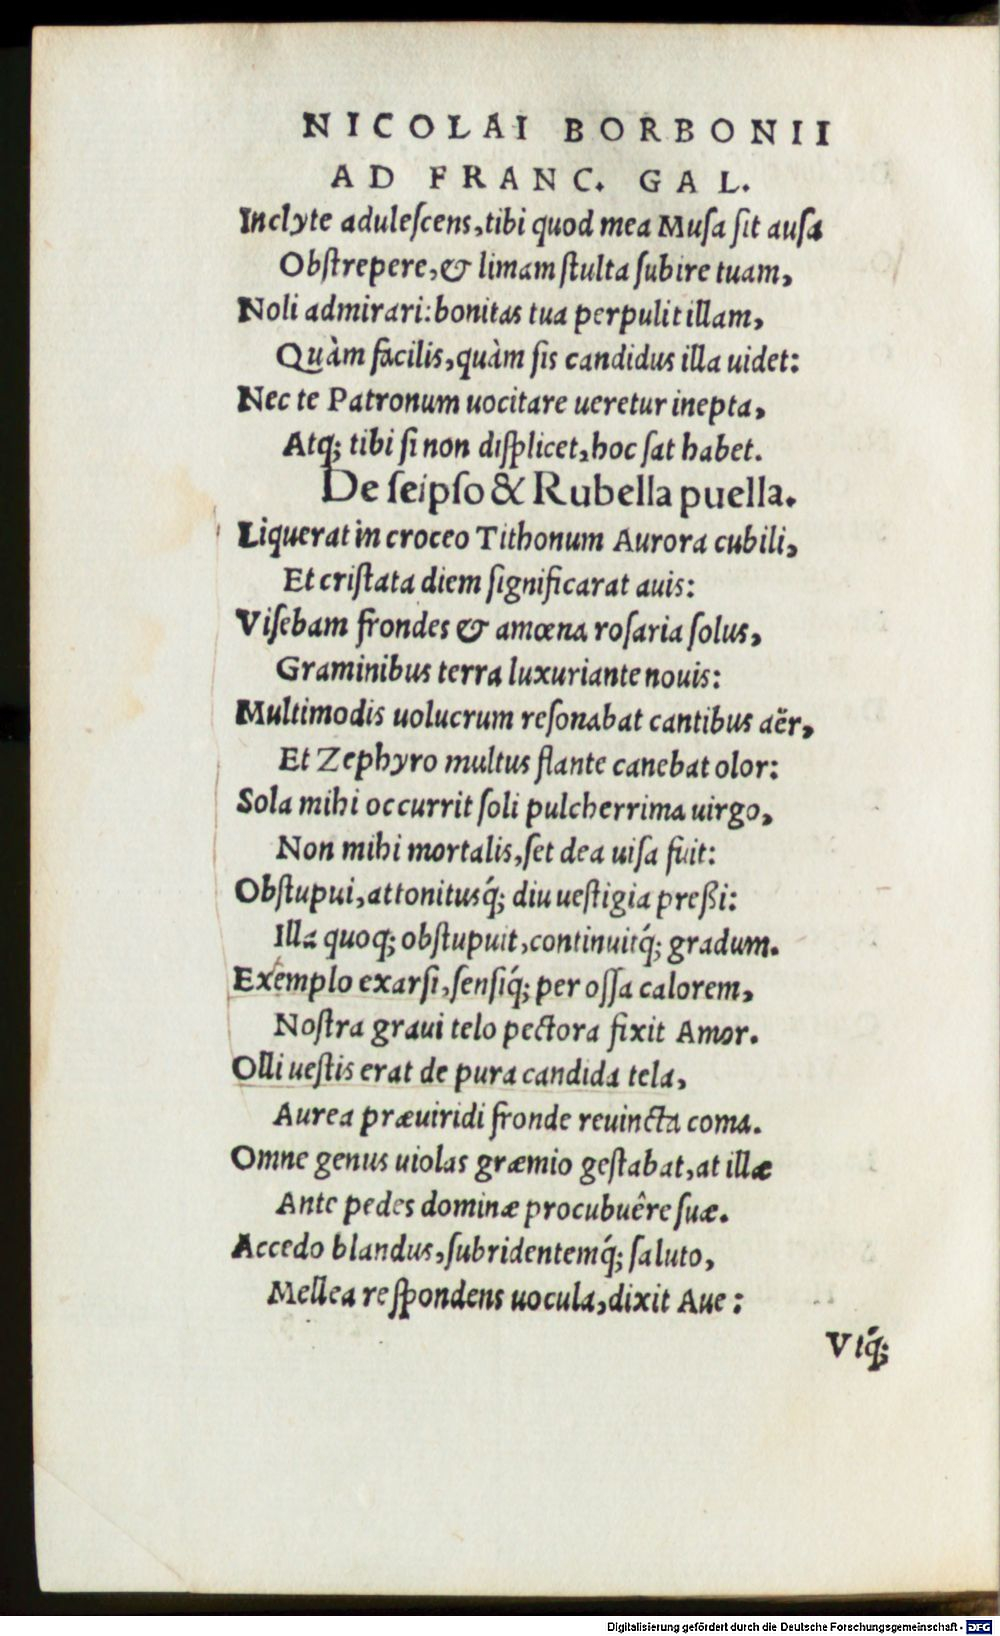 NICOLAI BORBONII
AD FRANC. GAL.
Inclyte aduleſcens, tibi quod mea Muſa ſit auſa
Obſtrepere, & limam ſtulta ſubire tuam,
Noli admirari: bonitas tua perpulit illam,
Quàm facilis, quàm ſis candidus illa uidet:
Nec te Patronum uocitare ueretur inepta,
Atq; tibi ſi non diſplicet, hoc ſat habet.
De ſeipſo & Rubella puella.
Liquerat in croceo Tithonum Aurora cubili,
Et criſtata diem ſignificarat auis:
Viſebam frondes & amœna roſaria ſolus,
Graminibus terra luxuriante nouis:
Multimodis uolucrum reſonabat cantibus aër,
Et Zephyro multus flante canebat olor:
Sola mihi occurrit ſoli pulcherrima uirgo,
Non mihi mortalis, ſet dea uiſa fuit:
Obſtupui, attonitusq́; diu ueſtigia preßi:
Illa quoq; obſtupuit, continuitq́; gradum.
Exemplo exarſi, ſenſiq́; per oſſa calorem,
Noſtra graui telo pectora fixit Amor.
Olli ueſtis erat de pura candida tela,
Aurea præuiridi fronde reuincta coma.
Omne genus uiolas græmio geſtabat, at illæ
Ante pedes dominæ procubuêre ſuæ.
Accedo blandus, ſubridentemq́; ſaluto,
Mellea reſpondens uocula, dixit Aue:
Vtq́;
Digitalisierung gefördert durch die Deutsche Forschungsgemeinschaft - DFG